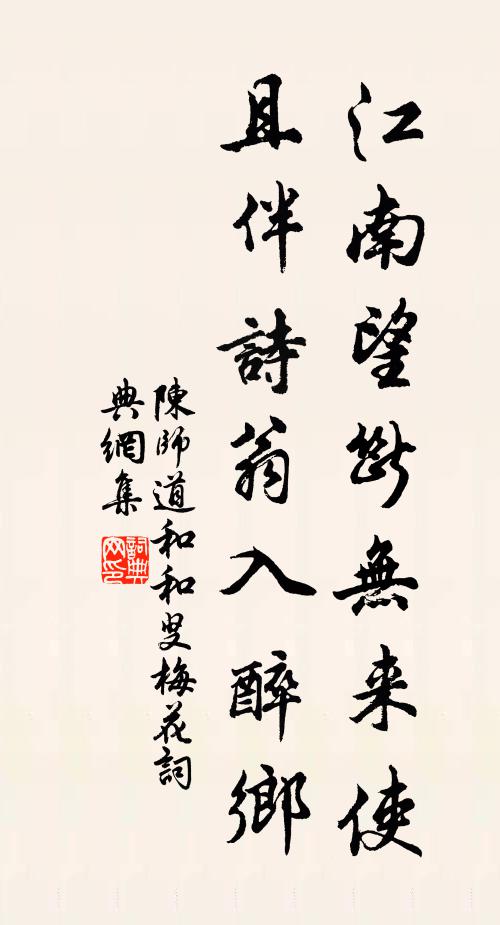 江南望斷無来使
且伴詩翁入醉鄉
陳師道和和叟梅花詞
典網集
詞典网印